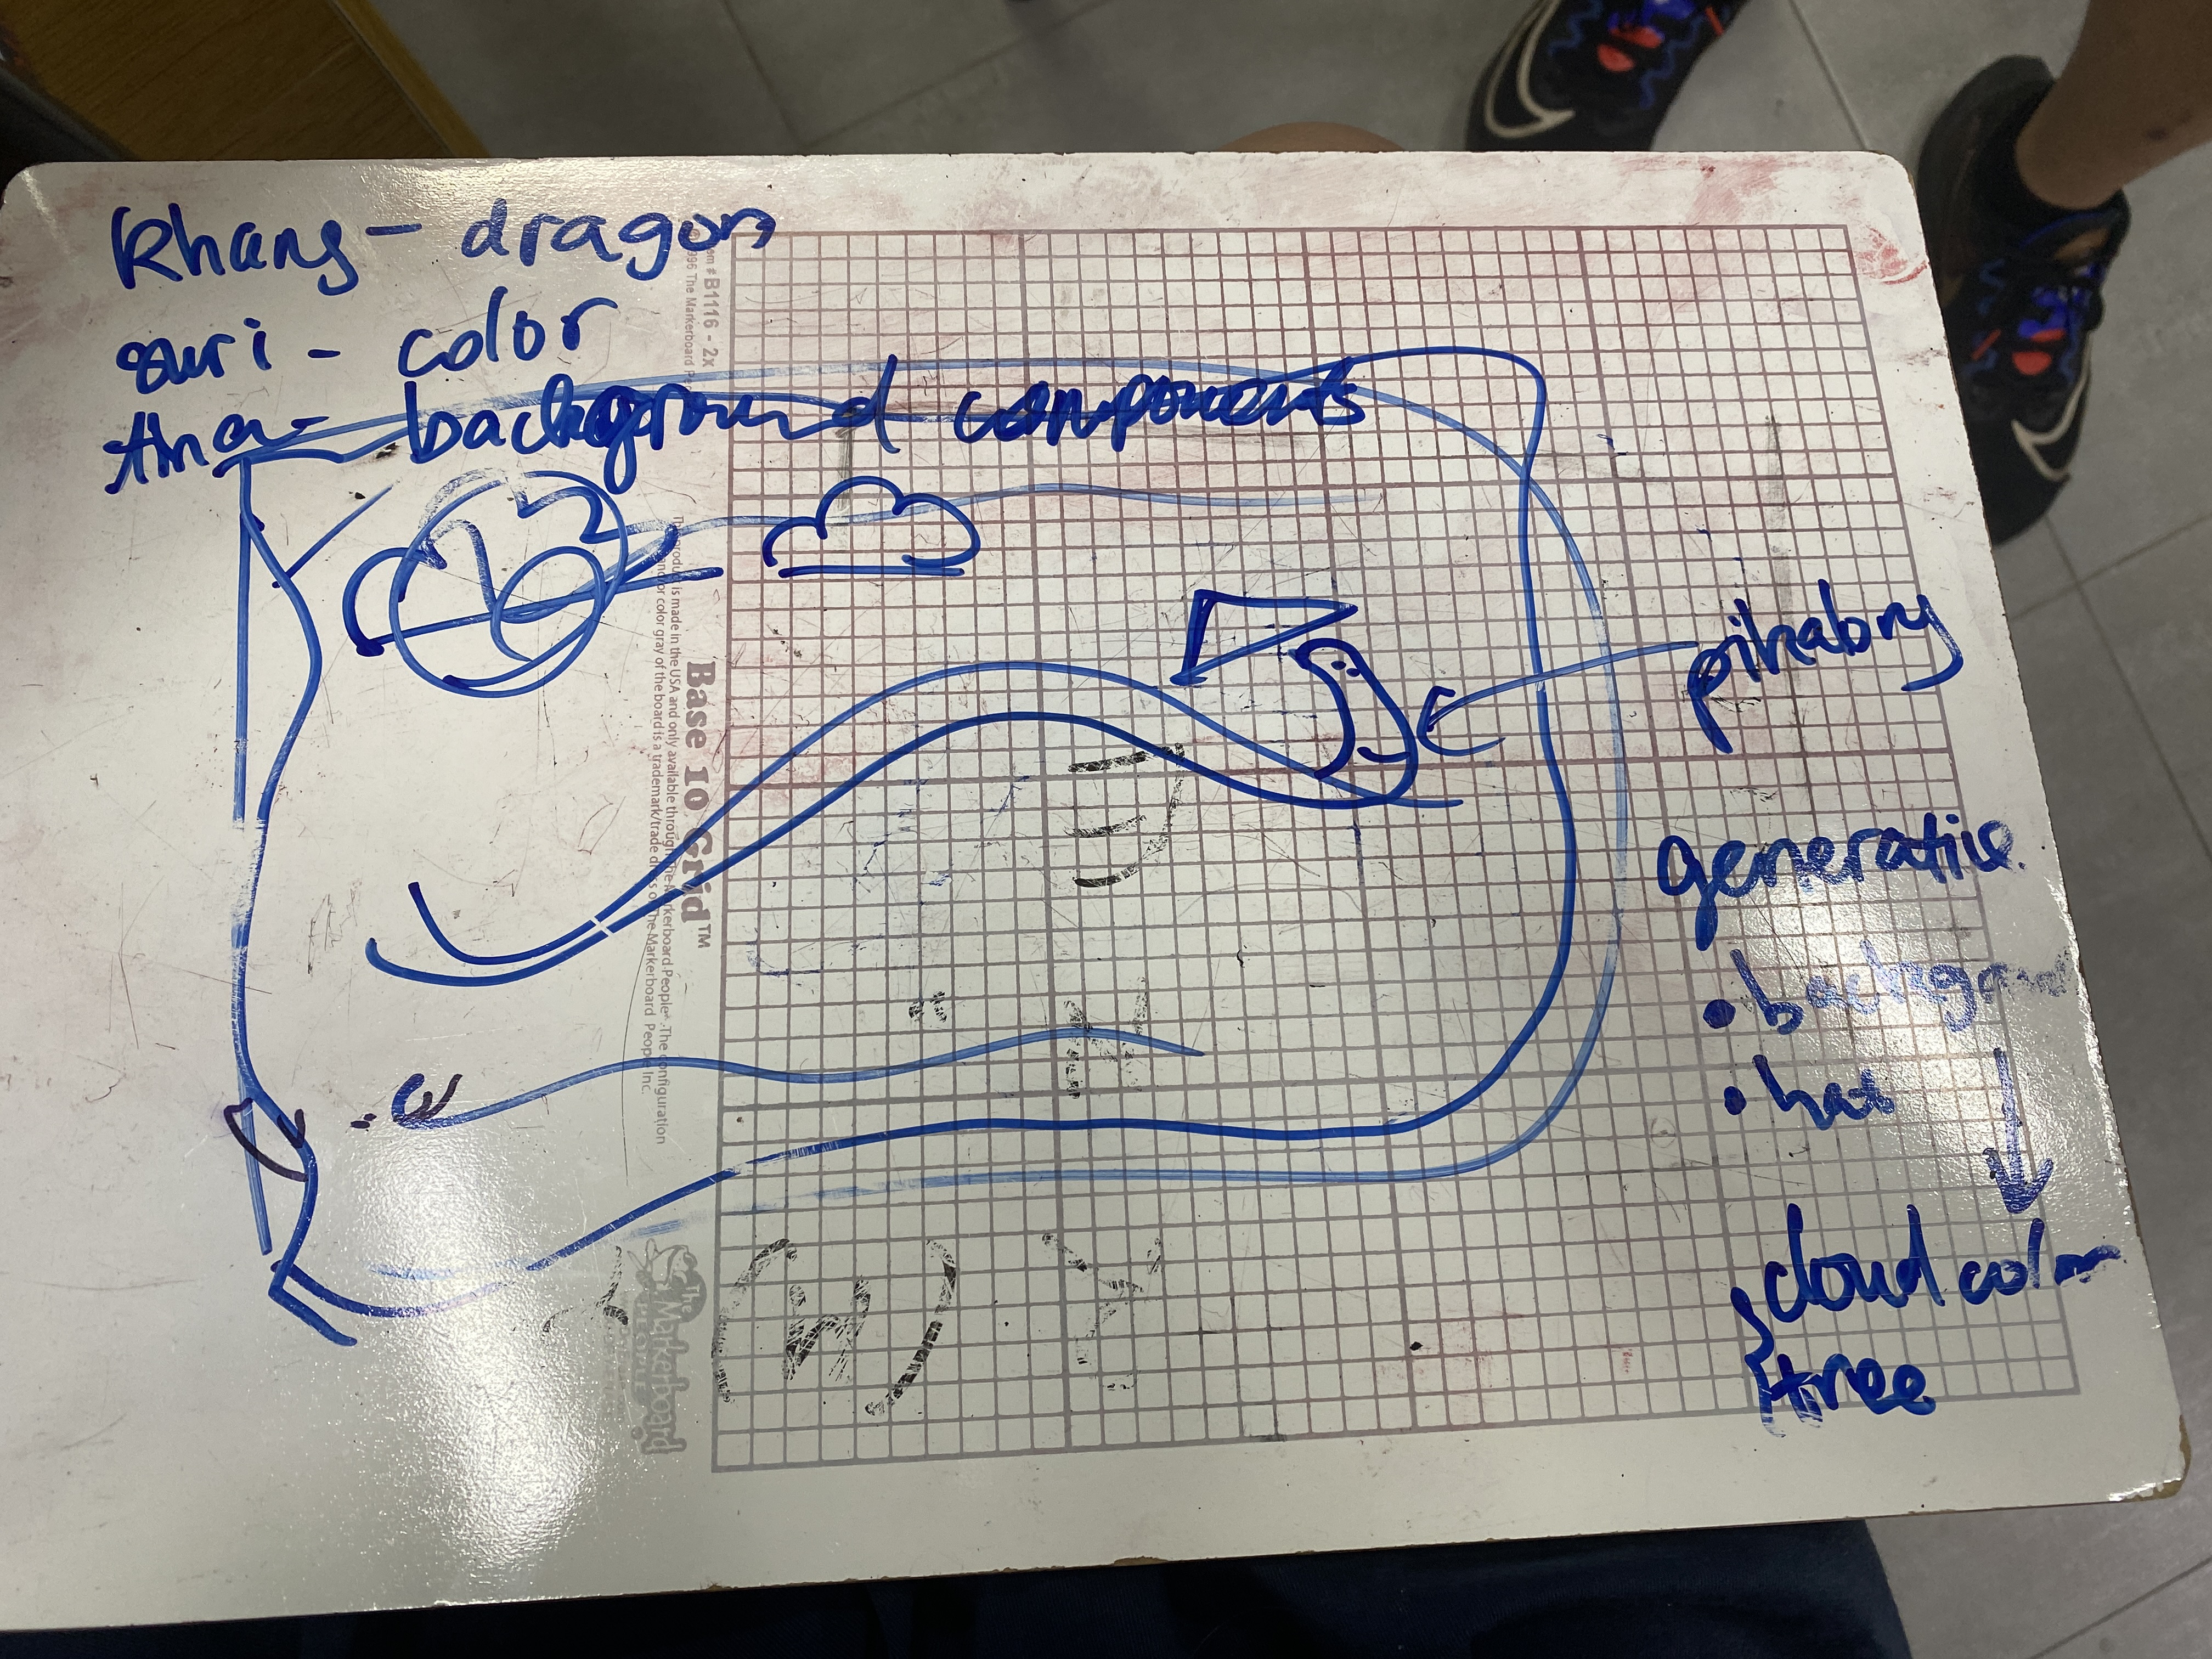 Khang - dragon
qari - color
Anan - background components
pikabory
generative
• backgroun
• hat
cloud color
tree
Base 10 Grid™
This product is made in the USA and only available through The Markerboard People. The configuration
and/or color gray of the board is a trademark/trade dress of The Markerboard People Inc.
The
Markerboard
PEOPLE